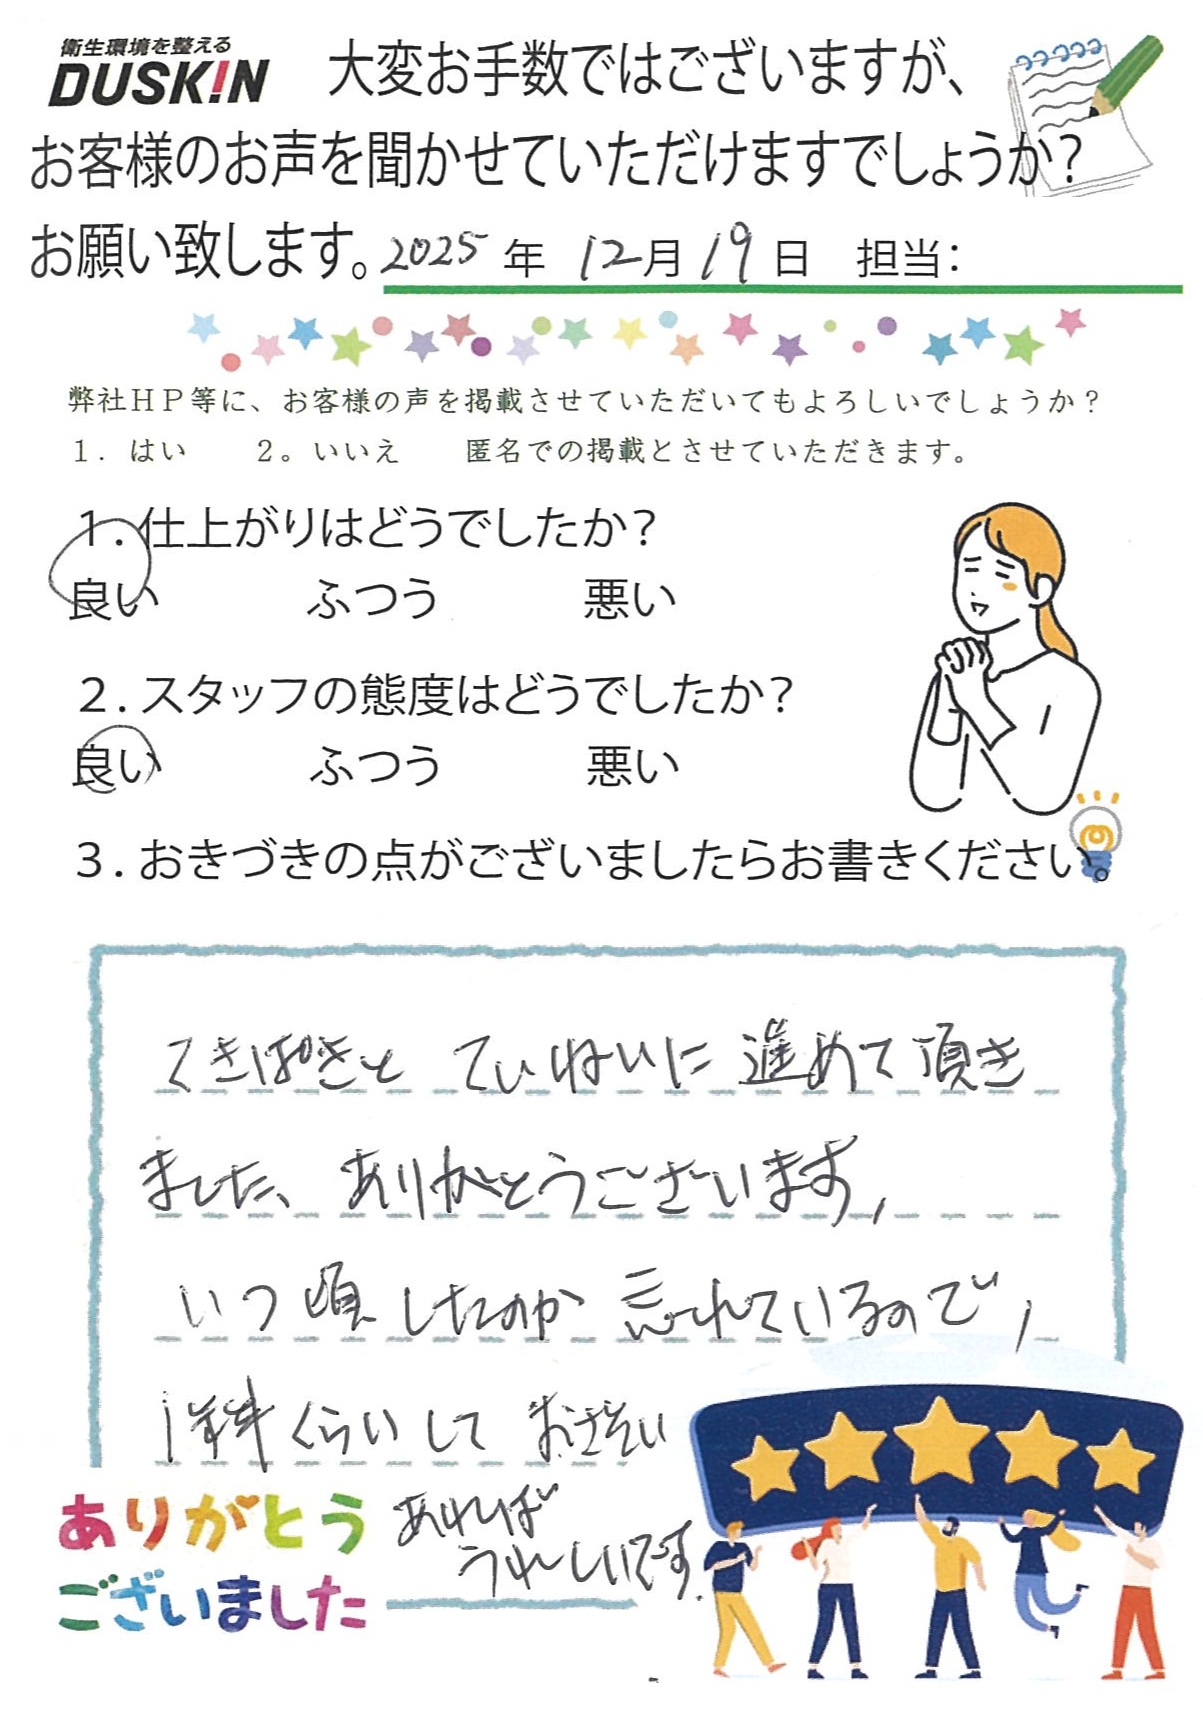 衛生環境を整える
DUSKIN
大変お手数ではございますが、
お客様のお声を聞かせていただけますでしょうか？
お願い致します。2025年 12月19日 担当：
弊社ＨＰ等に、お客様の声を掲載させていただいてもよろしいでしょうか？
１．はい ２。いいえ 匿名での掲載とさせていただきます。
１．仕上がりはどうでしたか？
良い ふつう 悪い
２．スタッフの態度はどうでしたか？
良い ふつう 悪い
３．おきづきの点がございましたらお書きください。
てきぱきと ていねいに 進めて頂き
ました、ありがとうございます，
いつ頃したのか 忘れているので，
1年 くらいして おさそい
あれば
うれしいです．
ありがとう
ございました